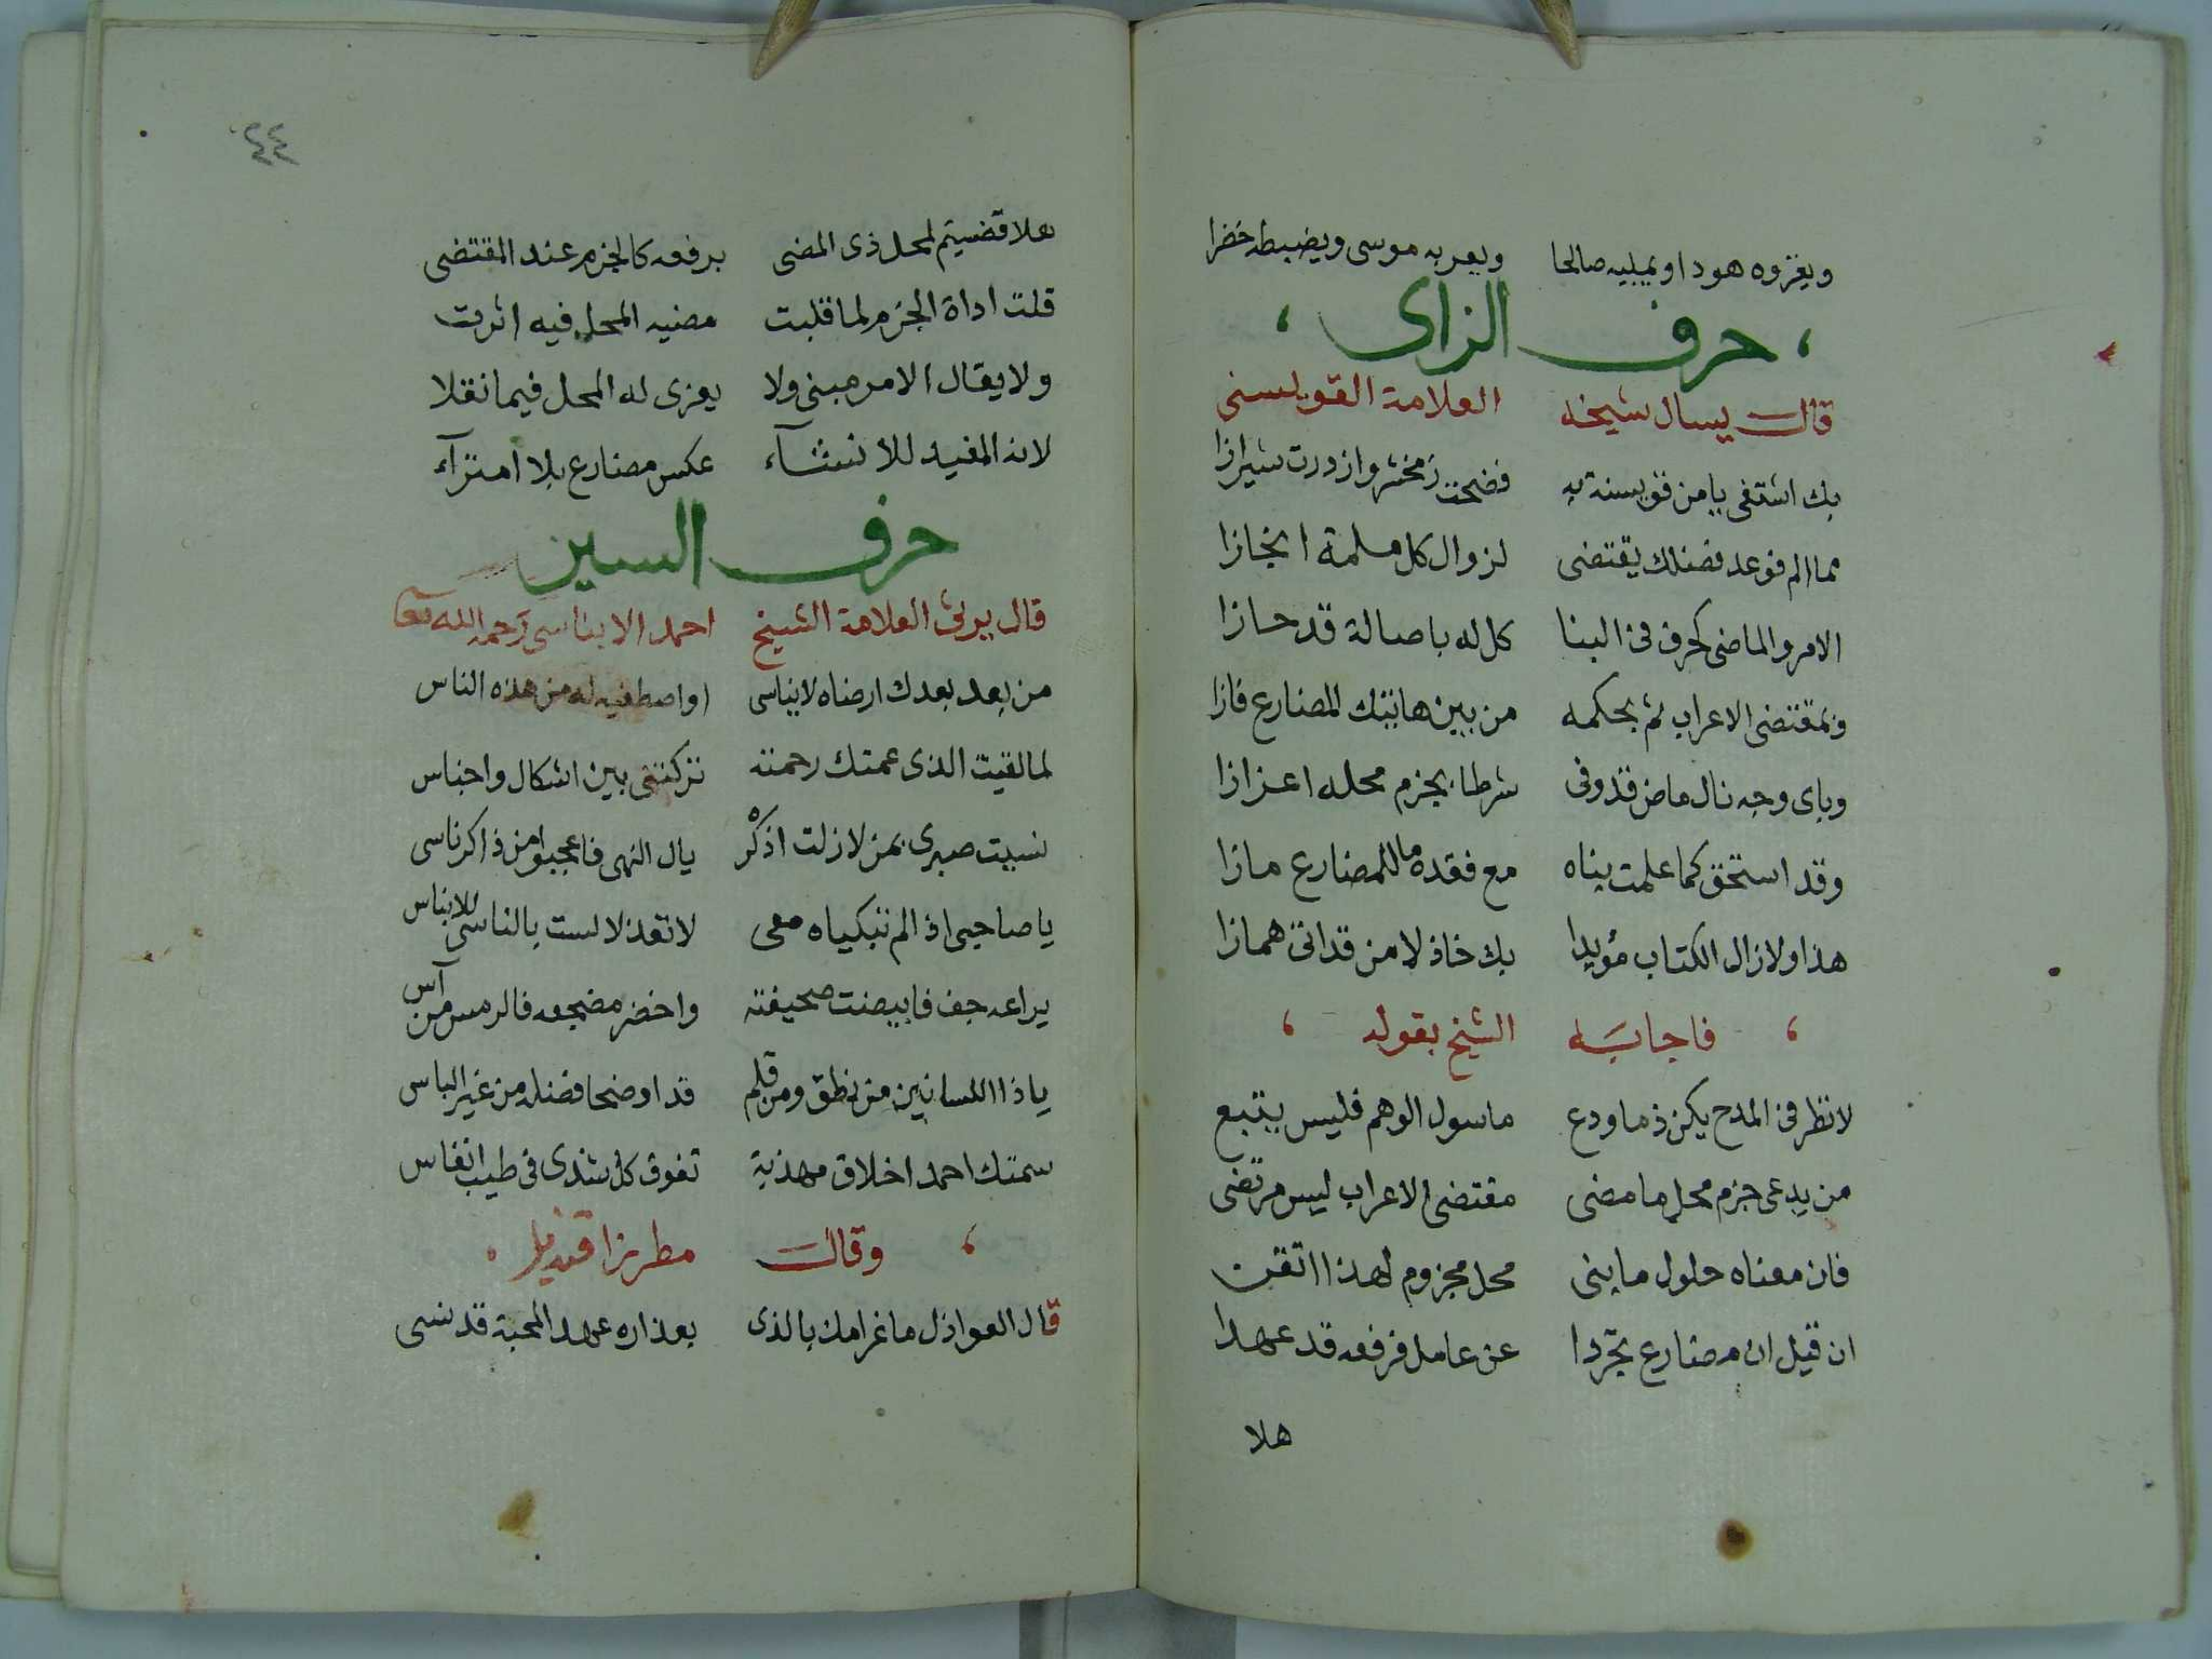 ويعزوه هودا ويمليه صالحا ويعربه موسى ويضبطه خضرا
حرف الزاى
قال يسال شيخه العلامة القويسنى
بك اشتفى يا من قويسنة به فضحت زمخشر وازدرت شيرازا
مما الم فوعد فضلك يقتضى لزوال كل ملمة انجازا
الامر والماضى كحرف فى البنا كل له باصالة قد حازا
وبمقتضى الاعراب ثم بحكمه من بين هاتيك المضارع فازا
وباى وجه نال ماض قد وفى شرطا بجزم محله اعزازا
وقد استحق كما علمت بناه مع فقده ما للمضارع مازا
هذا ولا زال الكتاب مؤيدا بك خاذلا من قد اتى همازا
فاجابه الشيخ بقوله
لا تطر فى المدح يكن ذما ودع ما سول الوهم فليس يتبع
من يدعى جزم محل ما مضى مقتضى الاعراب ليس مرتضى
فان معناه حلول ما بنى محل مجزوم لهذا اتقن
ان قيل ان مضارع تجردا عن عامل فرفعه قد عهدا
هلا
٤٤
هلا قضيتم لمحل ذى المضى برفعه كالجزم عند المقتضى
قلت اداة الجزم لما قلبت مضيه المحل فيه اثرت
ولا يقال الامر مبنى ولا يعزى له المحل فيما نقلا
لانه المفيد للانشآء عكس مضارع بلا امترآء
حرف السين
قال يرثى العلامة الشيخ احمد الابناسى رحمه الله تعا
من بعد بعدك ارضاه لايناسى او اصطفيه له من هذه الناس
لما لقيت الذى عمتك رحمته تركتنى بين اشكال واجناس
نسيت صبرى بمن لا زلت اذكر يال النهى فاعجبوا من ذاكر ناسى
يا صاحبى اذا لم تبكياه معى لا تعذلا لست بالناسى للابناس
يراعه جف فابيضت صحيفته واخضر مضجعه فالرمس من آس
يا ذا اللسانين من نطق ومن قلم قد اوضحا فضله من غير الباس
سمتك احمد اخلاق مهذبة تفوق كل شذى فى طيب انفاس
وقال مطرزا قنديل
قال العواذل ما غرامك بالذى بعذاره عهد المحبة قد نسى